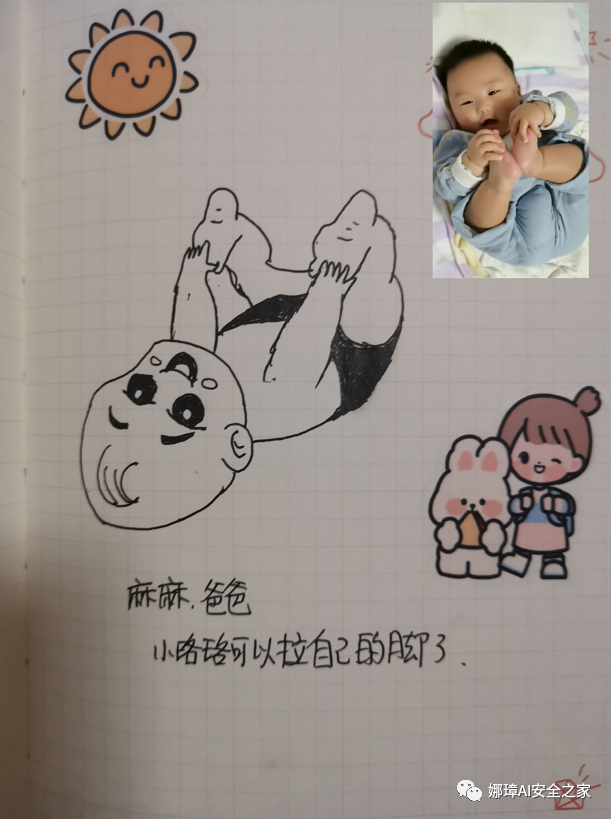 麻麻.爸爸
小珞珞可以拉自己的脚了.
娜璋AI安全之家